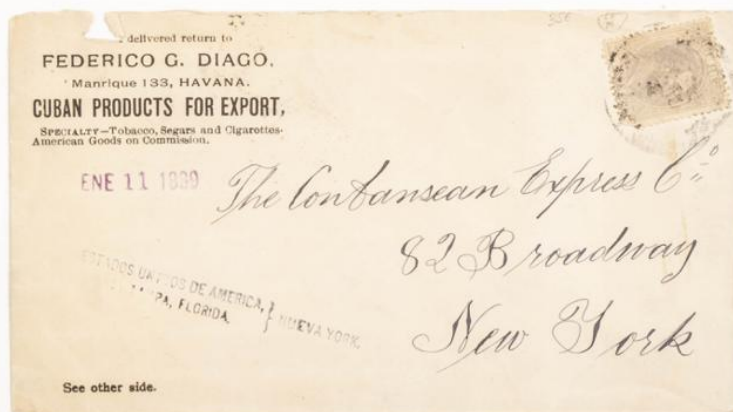 delivered return to
FEDERICO G. DIAGO,
Manrique 133, HAVANA.
CUBAN PRODUCTS FOR EXPORT,
SPECIALTY—Tobacco, Segars and Cigarettes.
American Goods on Commission.
ENE 11 1889
The Contansean Express Co
82 Broadway
New York
ESTADOS UNIDOS DE AMERICA,
TAMPA, FLORIDA.
} NUEVA YORK.
See other side.